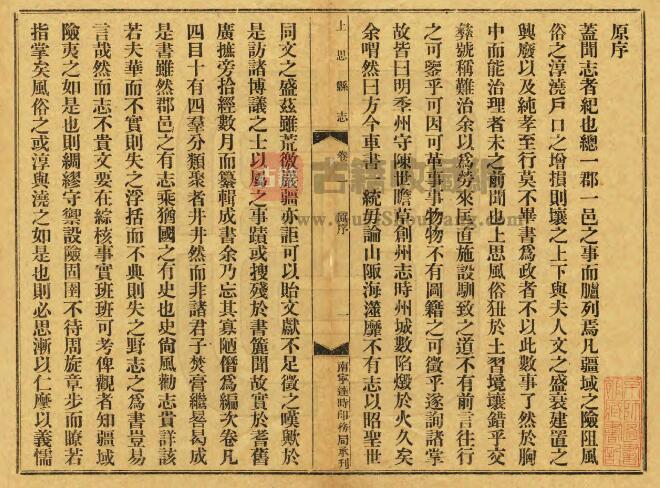 原序
蓋聞志者紀也總一郡一邑之事而臚列焉凡疆域之險阻風
俗之淳澆戶口之增損則壤之上下與夫人文之盛衰建置之
興廢以及純孝至行莫不畢書爲政者不以此數事了然於胸
中而能治理者未之前聞也上思風俗狃於土習境壤錯乎交
彝號稱難治余以爲勞來匡直施設馴致之道不有前言往行
之可鑒乎可因可革事事物物不有圖籍之可徵乎遂詢諸掌
故皆曰明季州守陳世瞻草創州志時州城數陷燬於火久矣
余喟然曰方今車書一統毋論山陬海澨靡不有志以昭聖世
上思縣志
卷
原序
一
南寧達時印務局承刊
同文之盛茲雖荒徼巖疆亦詎可以貽文獻不足徵之嘆歟於
是訪諸博議之士以風之事蹟或搜殘於書簏聞故實於耆舊
廣摭旁拾經數月而纂輯成書余乃忘其寡陋僭爲編次卷凡
四目十有四羣分類聚者井井然而非諸君子焚膏繼晷曷成
是書雖然郡邑之有志乘猶國之有史也史尙風勸志賞詳該
若夫華而不實則失之浮括而不典則失之野志之爲書豈易
言哉然而志不貴文要在綜核事實班班可考俾觀者知疆域
險夷之如是也則綢繆守禦設險固圉不待周旋章步而瞭若
指掌矣風俗之或淳與澆之如是也則必思漸以仁摩以義懦